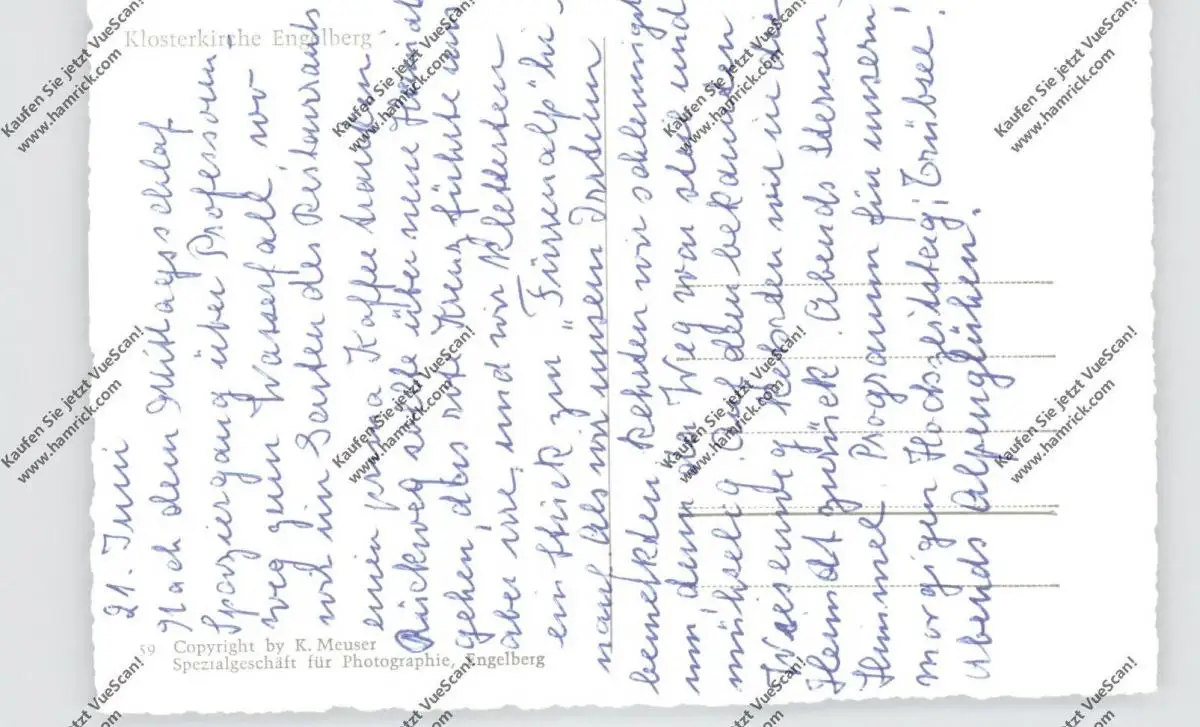 Klosterkirche Engelberg
21. Juni
Nach dem Mittagsschlaf
Spaziergang über Professoren
weg zum Wasserfall, wo
wir im Garten des Restaurants
einen prima Kaffee tranken.
Rückweg sollte über neue
gehen, das rote Kreuz führte uns
aber irre, und wir kletterten
ein Stück zur „Fürrenalp" hi-
nauf. Als wir unsern Irrtum
bemerkten kehrten wir schleunigst
um denn der Weg war steil und
mühselig. Auf dem bekannten
Wiesenweg kehrten wir in die
Heimat zurück. Abends Sternen-
Himmel. Programm für unsern
morgigen Hochzeitstag: Trübsee!
Abends Alpenglühen.
59 Copyright by K. Meuser
Spezialgeschäft für Photographie, Engelberg
Kaufen Sie jetzt VueScan!
www.hamrick.com